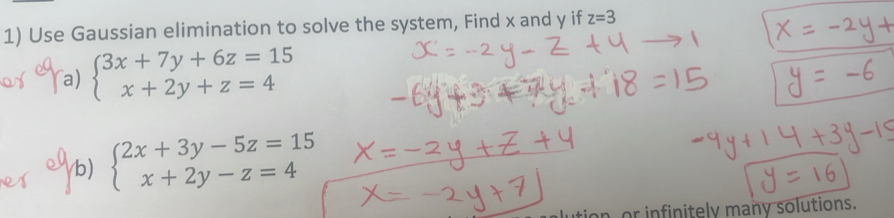 1) Use Gaussian elimination to solve the system, Find x and y if z=3
a) {3x + 7y + 6z = 15
x + 2y + z = 4
x = -2y - z + 4 → 1
+ 18 = 15
x = -2y +
y = -6
b) {2x + 3y − 5z = 15
x + 2y − z = 4
x = -2y + z + 4
x = -2y + 7
-4y + 14 + 3y - 15
y = 16
or infinitely many solutions.